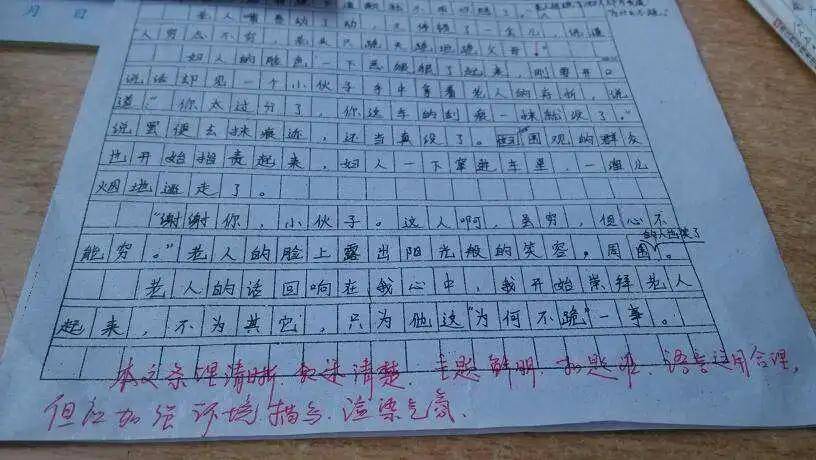 月 日
老人嘴巴动了动,又停顿了一会儿,说道
人穷志不穷,老夫只跪天跪地跪父母。
妇人的脸色一下
了起来,刚要开口
说话却见一个小伙子手中拿着老人的
,说
道:“你太过分了,你这车的刮痕一抹就没了。”
说罢便去抹痕迹,还当真没了。围观的群众
也开始指责起来,妇人一下窜进车里,一溜儿
烟地逃走了。
“谢谢你,小伙子。这人啊,虽穷,但心不
能穷。”老人的脸上露出阳光般的笑容,周围的人也笑了。
老人的话回响在我心中,我开始崇拜老人
起来,不为其它,只为他这“为何不跪”一事。
本文条理清晰,叙述清楚,主题鲜明,扣题准,语言运用合理,
但应加强环境描写,渲染气氛。